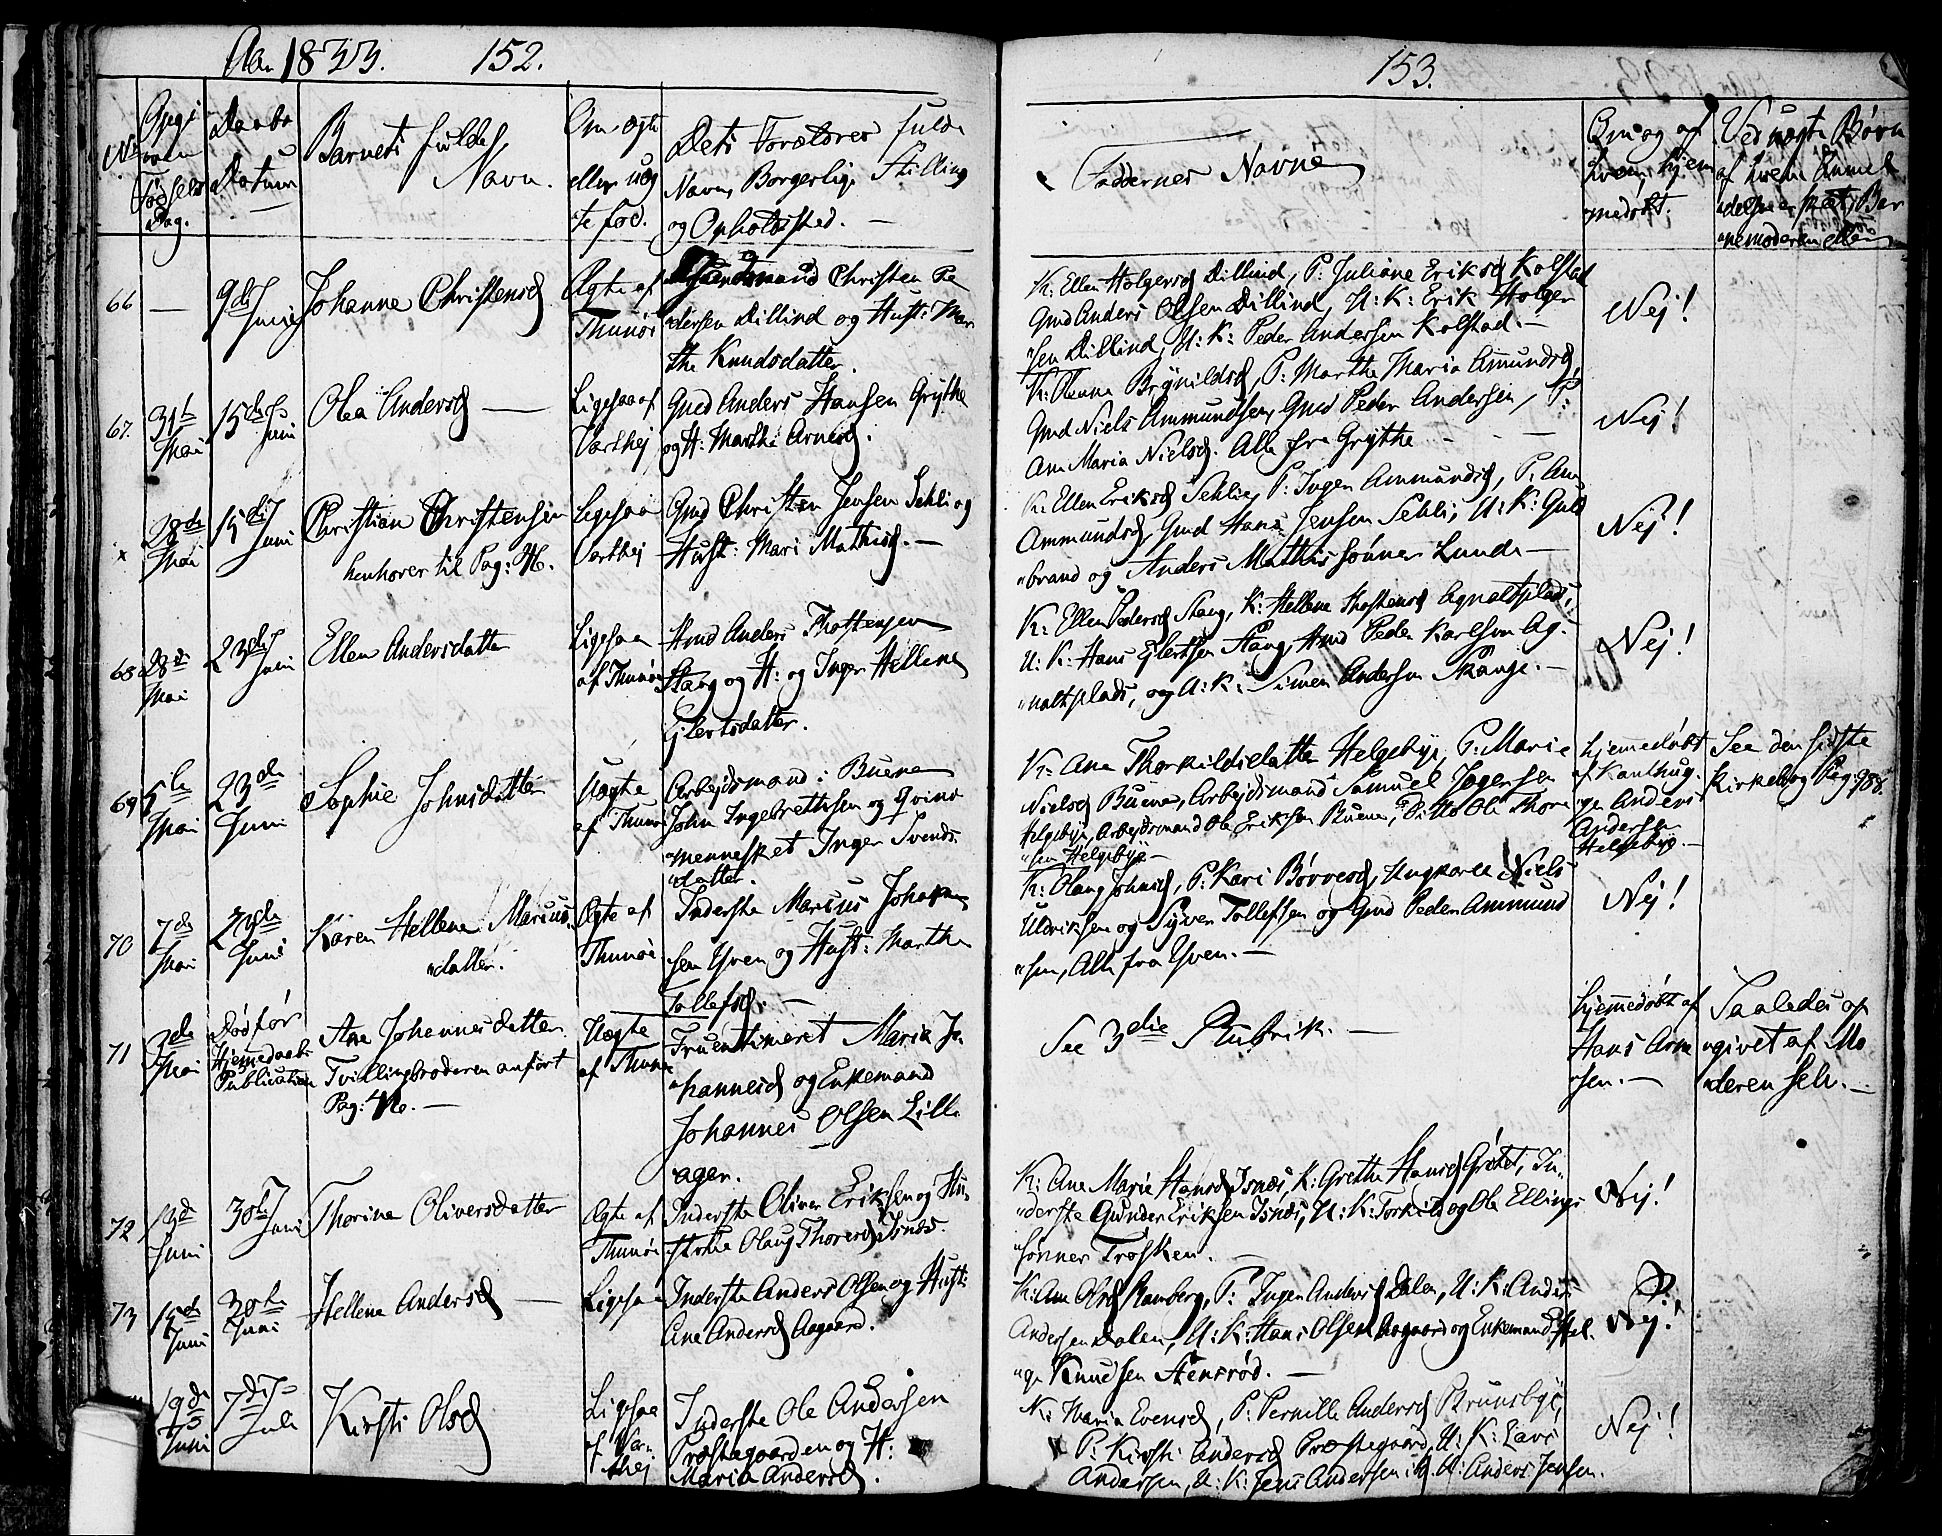 Ao. 1833. 152.
No
Opgi
vne
Fødsels
Dag.
Daabs
Datum
Barnets fulde
Navn.
Om ægte
eller uæg
te fød.
Dets Forældres fulde
Navn, Borgerlige Stilling
og Opholdssted. —
66 — 9de Juni Johanne Christensd
Ægte af
Thunøe
Christen Pe
dersen Dillind og Hust: Mar
the Knudsdatter.
67. 31te Mai 15de Juni Olea Andersd —
Ligesaa af
Varthej
Gmd Anders Hansen Grythe
og H: Marthe Arnesd.
28de Mai 15de Juni Christian Christensen
henhører til Pag: 46.
Ligesaa
Varthej
Gmd Christen Jensen Sehli og
Hust: Mari Mathisd. —
68 28de Mai 23de Juni Ellen Andersdatter
Ligesaa
af Thunøe
Hmd Anders Thostensen
Stang og H: og Inger Hellene
Ejlertsdatter.
69 5te Mai 23de Juni Sophie Johnsdatter
Uægte
af Thunøe
Arbejdsmand: Buene
John Ingebrethsen og Qvind
mennesket Inger Svends
datter.
70 7de Mai 23de Juni Karen Hellene Marius
datter.
Ægte af
Thunøe
Inderste Marius Johan
sen Yven og Hust: Marthe
Tollefsd. —
71 3de Mai Død før
Hjemedaabs
Publication
Ane Johannesdatter
Tvillingbroderen anført
Pag: 46. —
Uægte
af Thunøe
Fruentimeret Maria Jo
hannesd og Enkemand
Johannes Olsen Lille
agen.
72 13de Juni 30te Juni Thorine Oliversdatter
Ægte af
Thunøe
Inderste Oliver Eriksen og Hu
strue Olaug Thoresd Isnæs.
73 15de Juni 30te Juni Hellene Andersd —
Ligesaa
Inderste Anders Olsen og Hust:
Ane Andersd Aagaard.
19de Juni 7de Juli Kirsti Olsd
Ligesaa
af Var
thej
Inderste Ole Andersen
Præstegaarden og H:
Maria Andersd.
153.
Faddernes Navne
Om og af
hvem, hjem
medøbt.
Ved uægte Børn
af hvem Anmel
delsen er skeet, Bar
nemoderen eller
K: Ellen Holgersd Dillind, P: Juliane Eriksd Kolstad
Gmd Anders Olsen Dillind, U: K: Erik Holger
sen Dillind, U: K: Peder Andersen Kolstad. —
Nej!
K: Olenne Brynildsd, P: Marthe Maria Amundsd,
Gmd Niels Ammundsen, Gmd Peder Andersen, P:
Ane Maria Nielsd. Alle fra Grythe
Nej!
K: Ellen Eriksd Sehlie, P: Ingen Ammundsd, P: Ane
Ammundsd, Gmd Hans Jensen Sehli, U: K: Guld
brand og Anders Mathis sønner Lunde —
Nej!
K: Ellen Pedersd Stang, K: Hellene Thostensd Agnaltplads,
U: K: Hans Ejlertsen Stang, Hmd Peder Karlsen Ag
naltplads, og U: K: Simen Andersen Skange. —
Nej!
K: Ane Thorkildsdatter Helgebye, P: Marie
Nielsd Buene, Arbejdsmand Samuel Jogersen
Helgebye, Arbejdsmand Ole Eriksen Buene, Ole Thore
sen Helgebye —
hjemmedøbt
af Kauthug
ge Anders
Andersen
Helgebye. —
See den sidste
Kirkebog Pag: 988.
K: Olaug Johnsd, P: Kari Børresd, Ungkarle Niels
Uldriksen og Syver Tollefsen og Gmd Peder Ammund
sen, Alle fra Yven. —
Nej!
See 3die Rubrik. —
hjemmedøbt af
Hans Arne
sen. —
Saaledes op
givet af Mo
deren selv. —
K: Ane Marie Hansd Isnæs, K: Grethe Hansd Grötet, In
derste Gunder Eriksen Isnæs, U: K: Torkild og Ole Ellings
sønner Trosken.
Nej!
K: Ane Olsd Ramberg, P: Ingen Andersd Dalen, U: K: Anders
Andersen Dalen, U: K: Hans Olsen Aagaard og Enkemand Hel
ge Knudsen Stensrød. —
Nej!
K: Maria Evensd, P: Pernille Andersd Brunsbye,
P: Kirsti Andersd Præstegaard, U: K: Lars
Andersen, U: K: Jens Andersen ibd. U: Anders Jensen.
Nej!